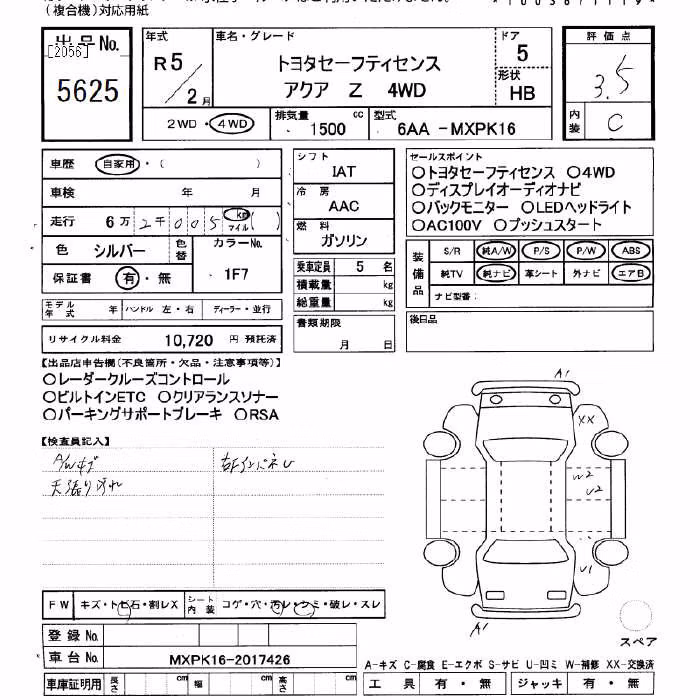 (複合機)対応用紙
出品No.
[2056]
5625
年式
R5/2月
車名・グレード
トヨタセーフティセンス
アクア Z 4WD
ドア
5
形状
HB
評価点
3.5
内装
C
2WD・4WD
排気量 1500 cc
型式 6AA -MXPK16
車歴 自家用・( )
車検 年 月
走行 6万2千005 km マイル( )
色 シルバー
色替
カラーNo.
1F7
保証書 有・無
モデル年式 年 ハンドル 左・右 ディーラー・並行
リサイクル料金 10,720 円 預託済
シフト
IAT
冷房
AAC
燃料
ガソリン
乗車定員 5 名
積載量 kg
総重量 kg
書類期限
月 日
セールスポイント
○トヨタセーフティセンス ○4WD
○ディスプレイオーディオナビ
○バックモニター ○LEDヘッドライト
○AC100V ○プッシュスタート
装備品
S/R 純A/W P/S P/W ABS
純TV 純ナビ 革シート 外ナビ エアB
ナビ型番:
後日品
【出品店申告欄(不良箇所・欠品・注意事項等)】
○レーダークルーズコントロール
○ビルトインETC ○クリアランスソナー
○パーキングサポートブレーキ ○RSA
【検査員記入】
A/Wキズ
天張り汚れ
右FインパネU
A1
XX
W2
U2
U1
A1
スペア
FW キズ・トビ石・割レX
シート内装 コゲ・穴・汚レ・シミ・破レ・スレ
登録No.
車台No. MXPK16-2017426
車庫証明用 長さ cm 幅 cm 高さ cm
A-キズ C-腐食 E-エクボ S-サビ U-凹ミ W-補修 XX-交換済
工具 有・無 ジャッキ 有・無